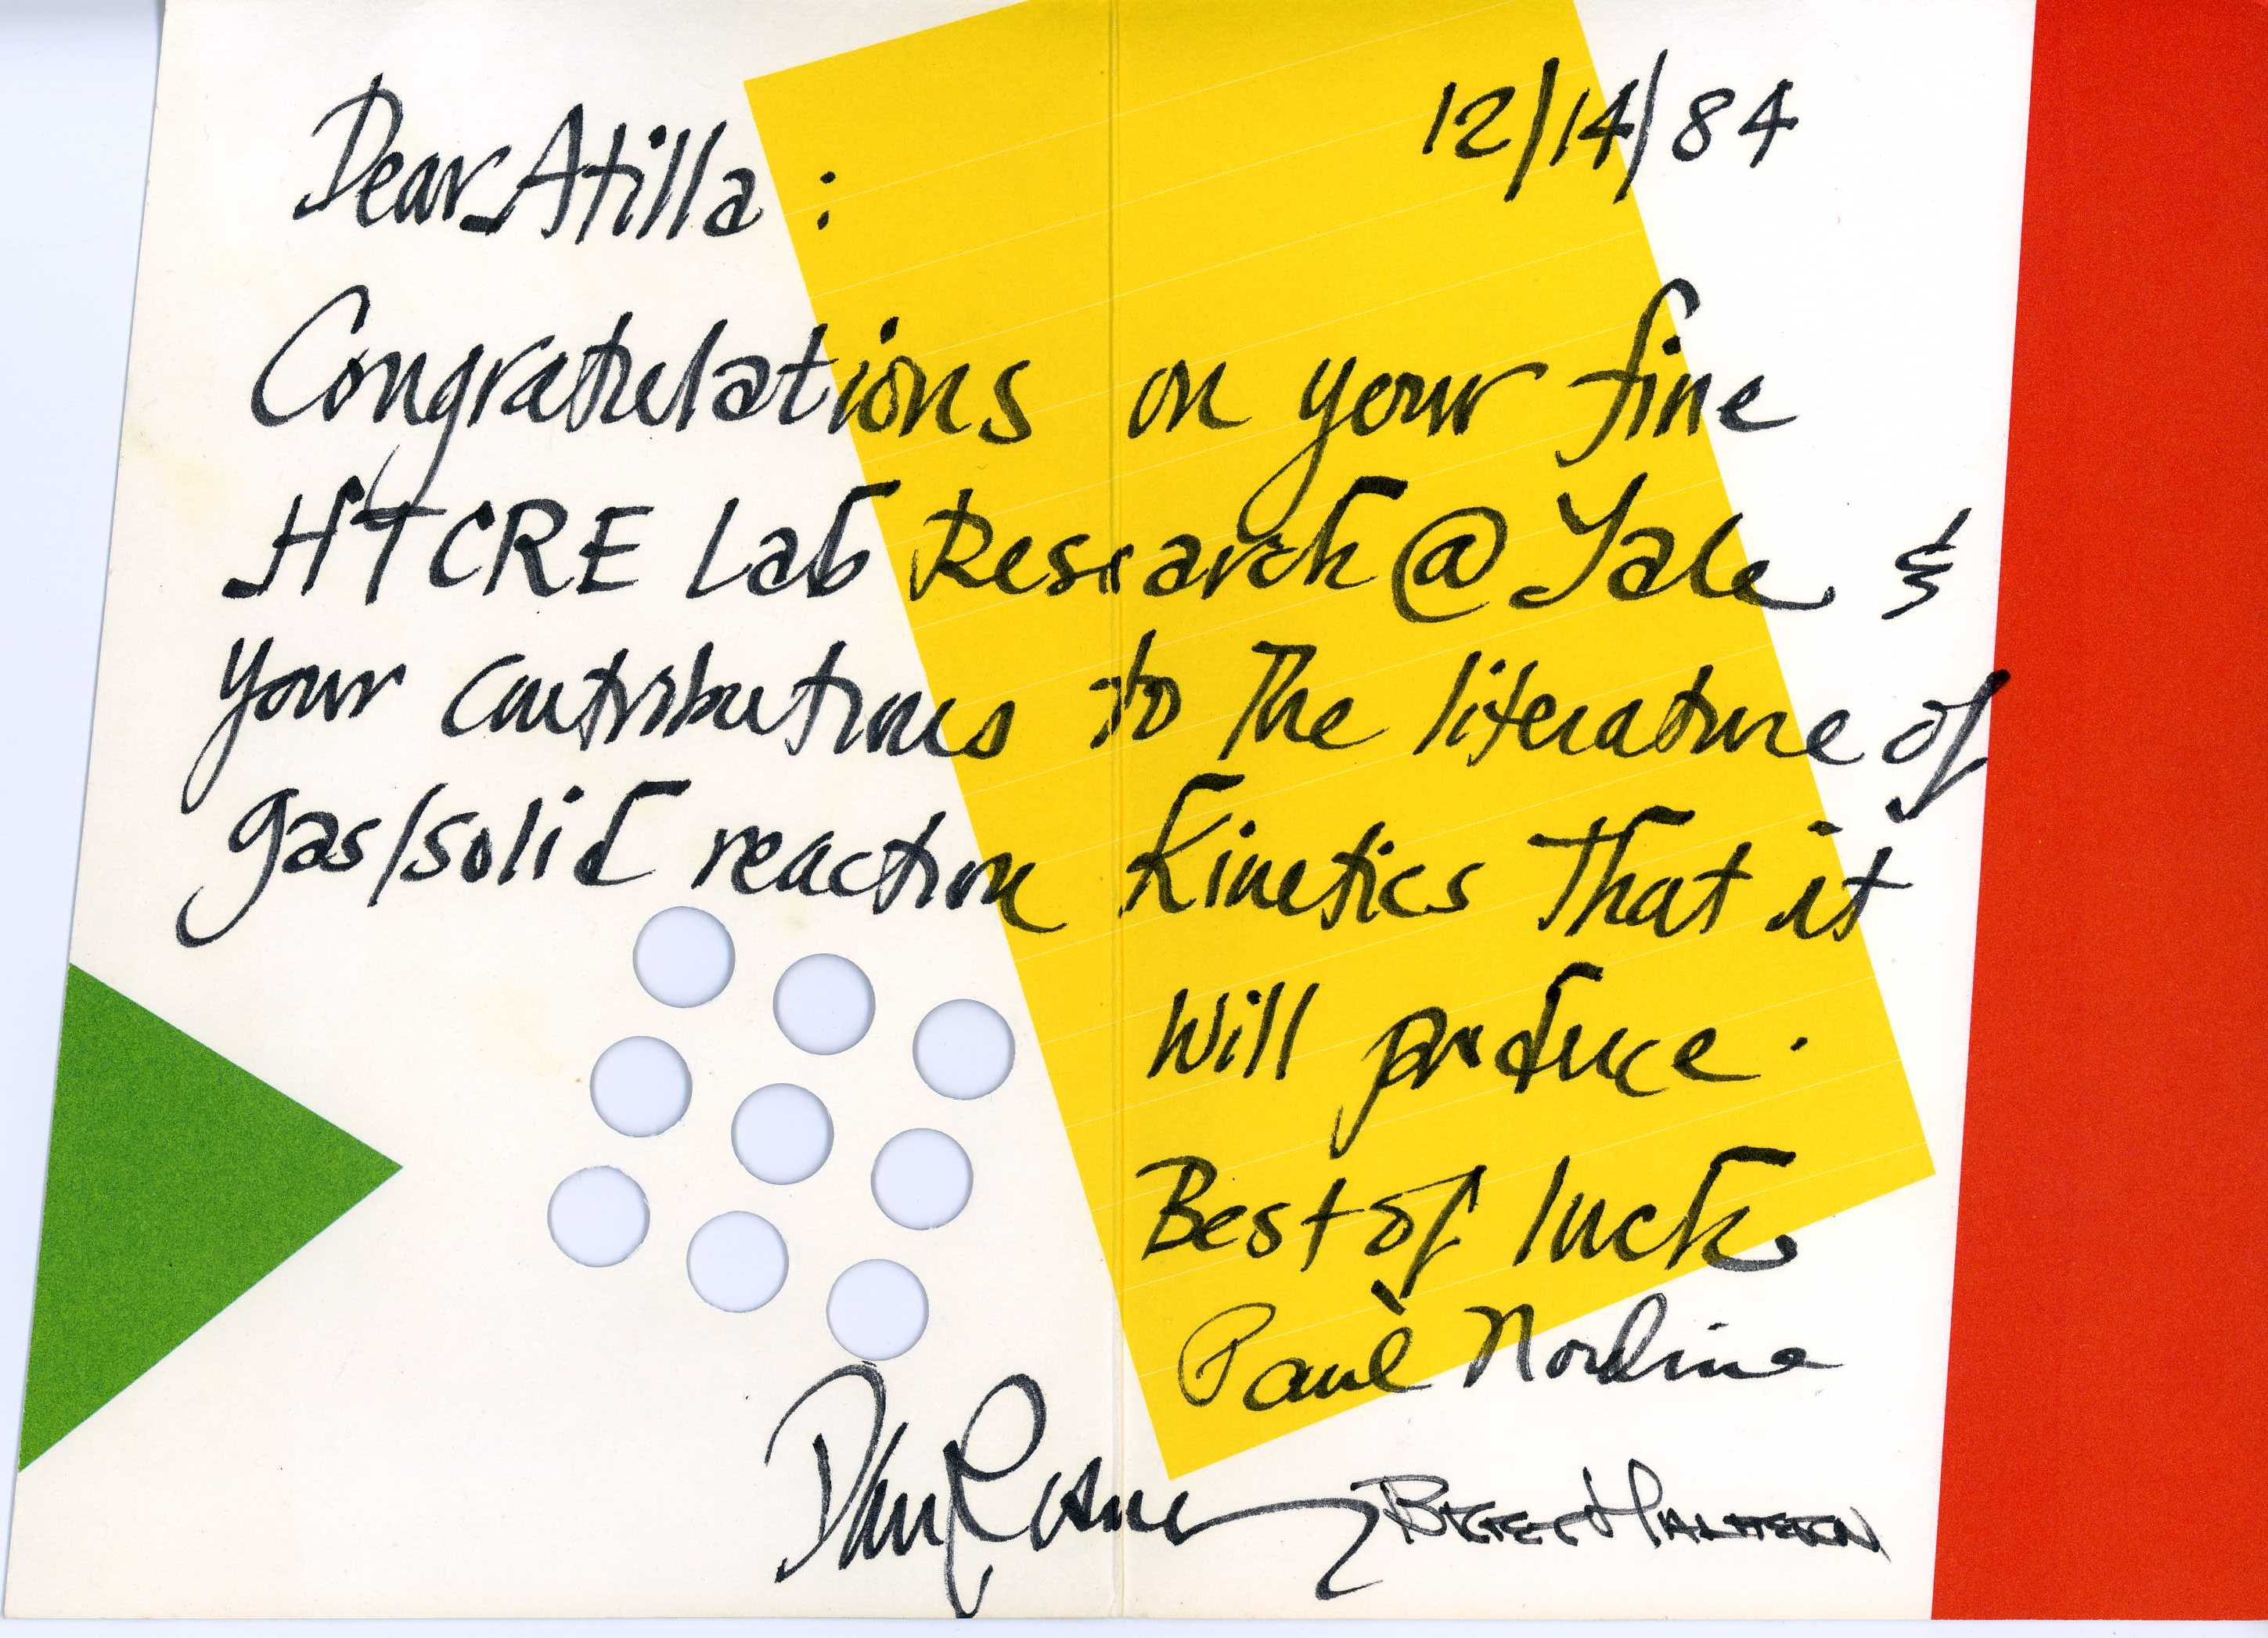 12/14/84
Dear Atilla :
Congratulations on your fine
HTCRE Lab Research @ Yale &
your contributions to The literature of
gas/solid reaction kinetics That it
Will produce.
Best of luck
Paul Nordine
Dan Rosner